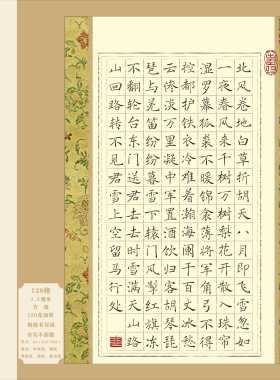 北风卷地白草折胡天八月即飞雪忽如
一夜春风来千树万树梨花开散入珠帘
湿罗幕狐裘不暖锦衾薄将军角弓不得
控都护铁衣冷难着瀚海阑干百丈冰愁
云惨淡万里凝中军置酒饮归客胡琴琵
琶与羌笛纷纷暮雪下辕门风掣红旗冻
不翻轮台东门送君去去时雪满天山路
山回路转不见君雪上空留马行处
128格
方格